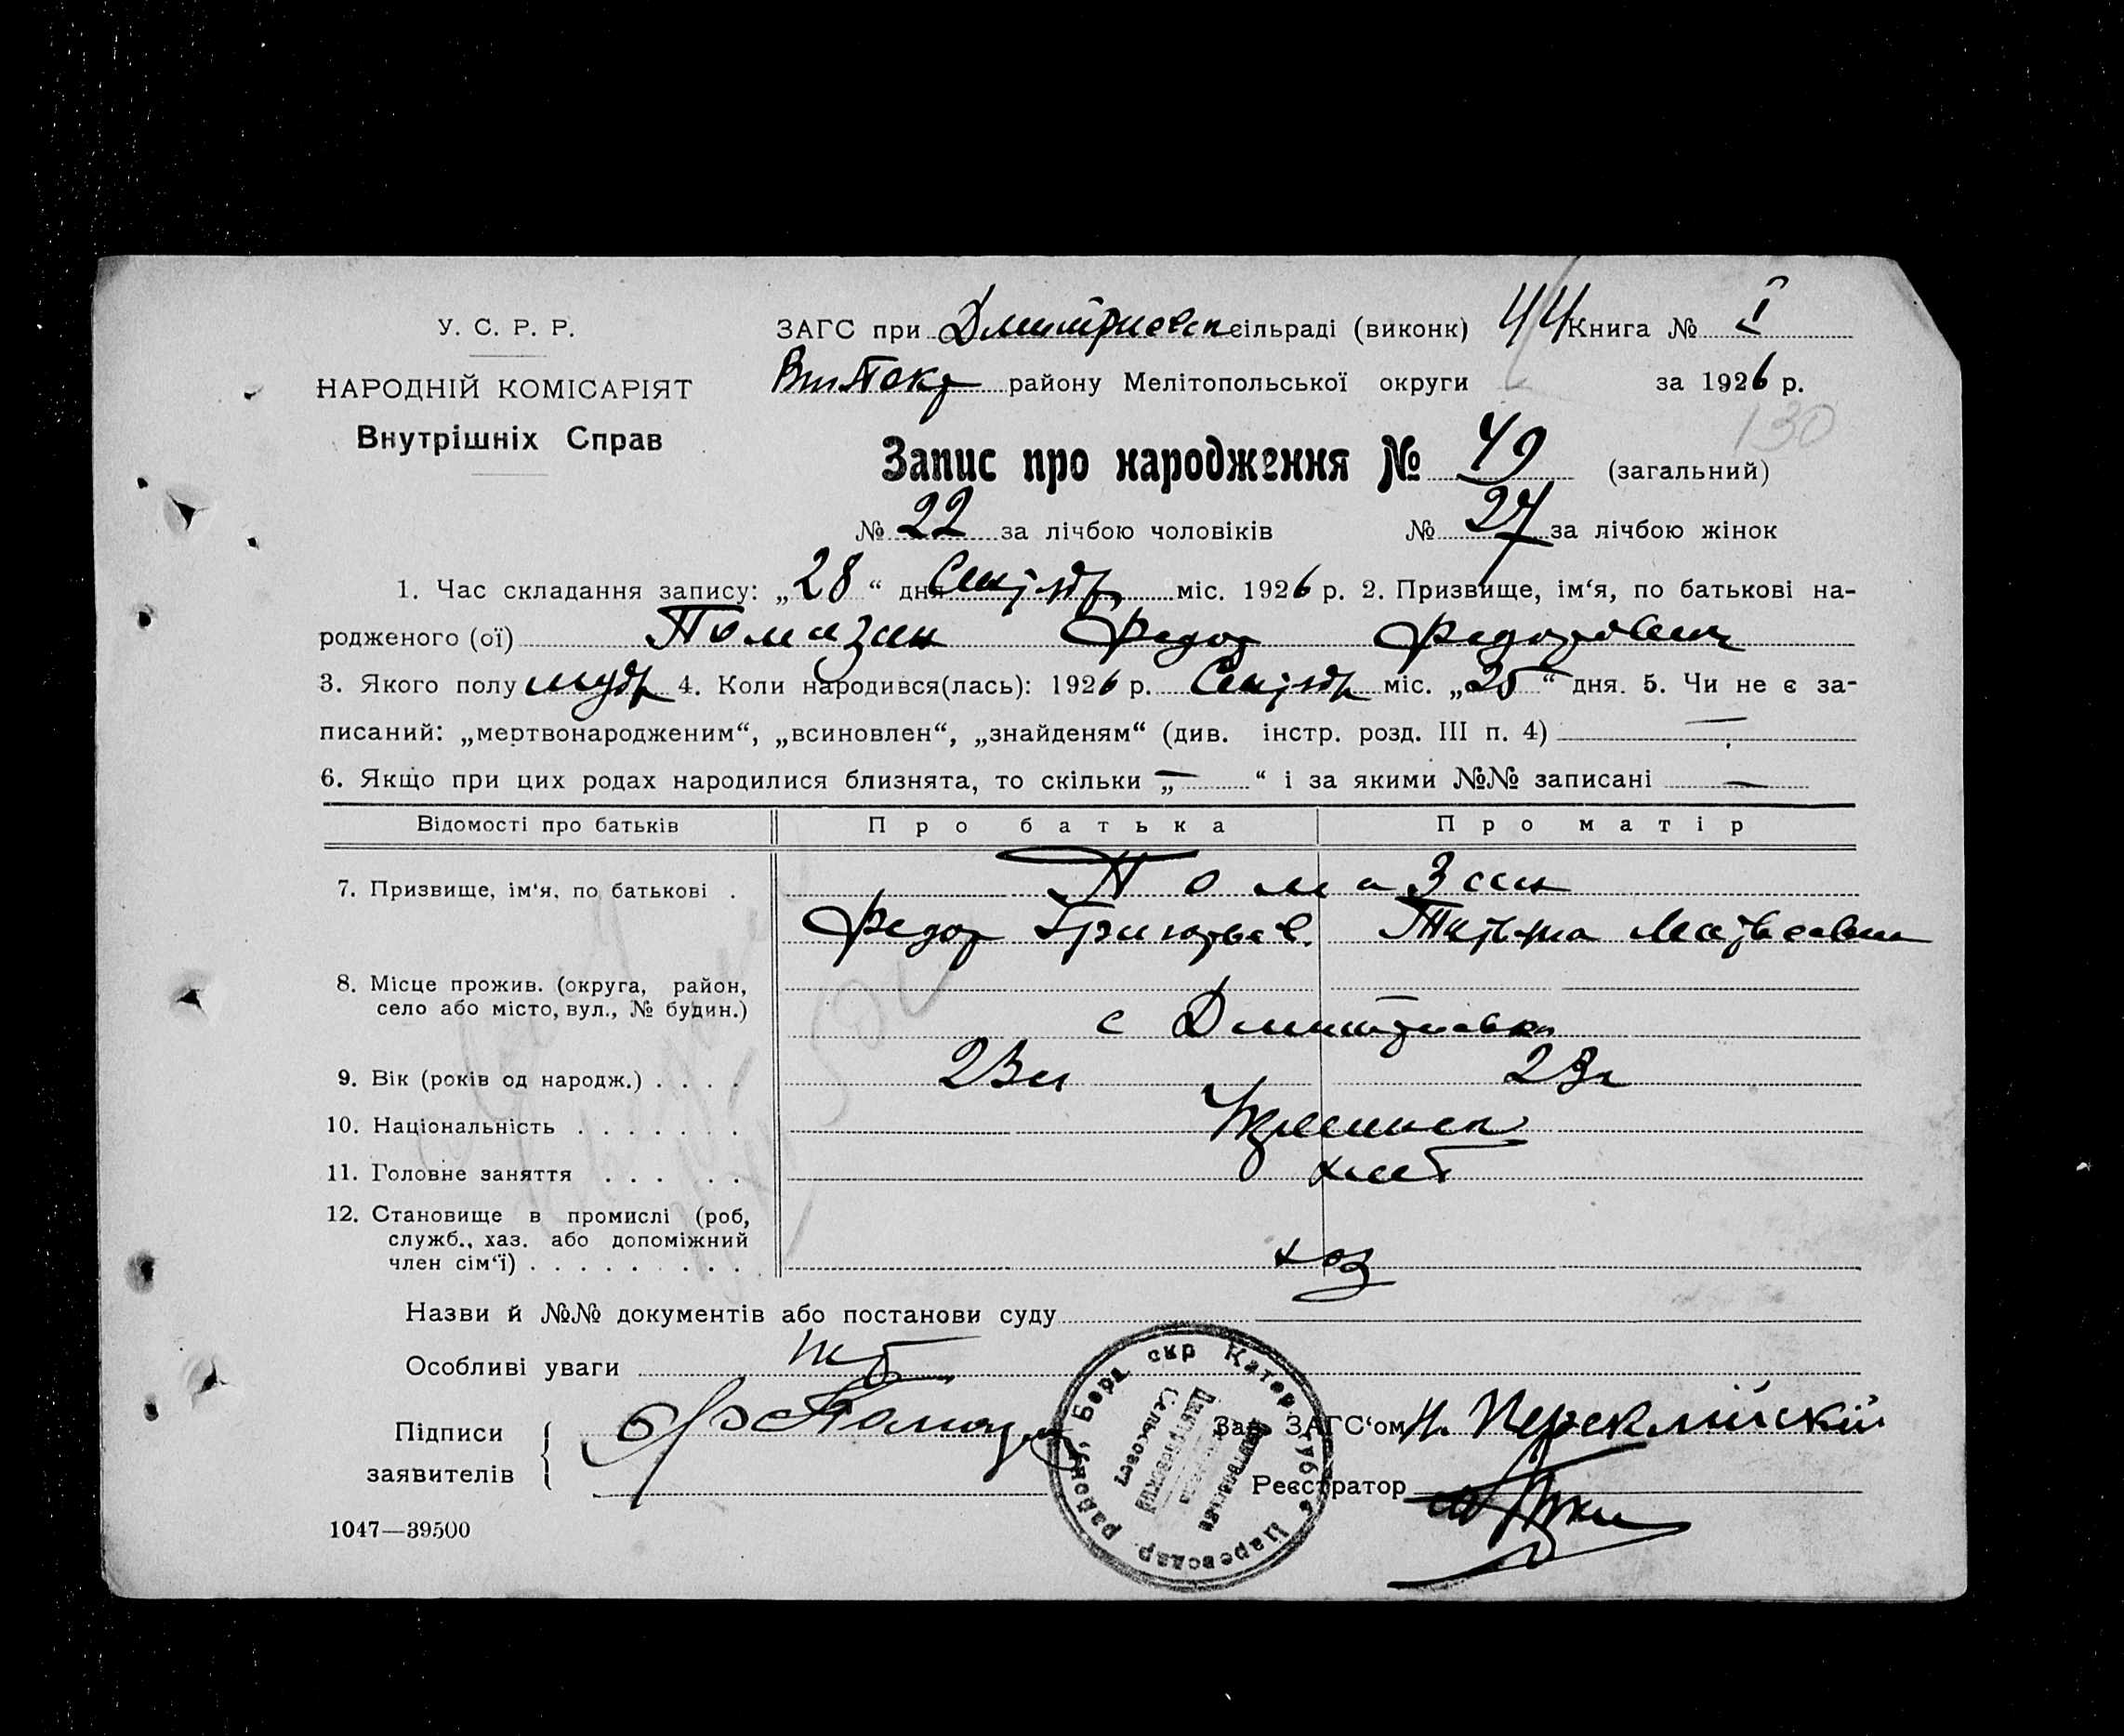 У. С. Р. Р.
НАРОДНІЙ КОМІСАРІЯТ
Внутрішніх Справ
ЗАГС при Дмитриевск сільраді (виконк) 44 Книга № I
району Мелітопольської округи за 1926 р.
130
Запис про народження № 49 (загальний)
№ 22 за лічбою чоловіків № 27 за лічбою жінок
1. Час складання запису: „28“ дня Сентябр міс. 1926 р. 2. Призвище, ім‘я, по батькові на-
родженого (ої) Помазан Федор Федорович
3. Якого полу 4. Коли народився(лась): 1926 р. Сентябр міс. „25“ дня. 5. Чи не є за-
писаний: „мертвонародженим“, „всиновлен“, „знайденям“ (див. інстр. розд. III п. 4) —
6. Якщо при цих родах народилися близнята, то скільки „—“ і за якими №№ записані —
Відомості про батьків Про батька Про матір
7. Призвище, ім‘я, по батькові . Помазан
Федор Григорьев. Татьяна Матвеевна
8. Місце прожив. (округа, район,
село або місто, вул., № будин.) с Дмитриевка
9. Вік (років од народж.) . . . . 23 23
10. Національність . . . . . . .
11. Головне заняття . . . . . хлеб
12. Становище в промислі (роб,
служб., хаз. або допоміжний
член сім‘ї) . . . . . . . . . хоз
Назви й №№ документів або постанови суду
Особливі уваги
Підписи
заявителів
Зав. ЗАГС‘ом
Реєстратор
Катер. губ. Цареводар. район, Берд. окр
Дмитриевский
Сельсовет
1047—39500